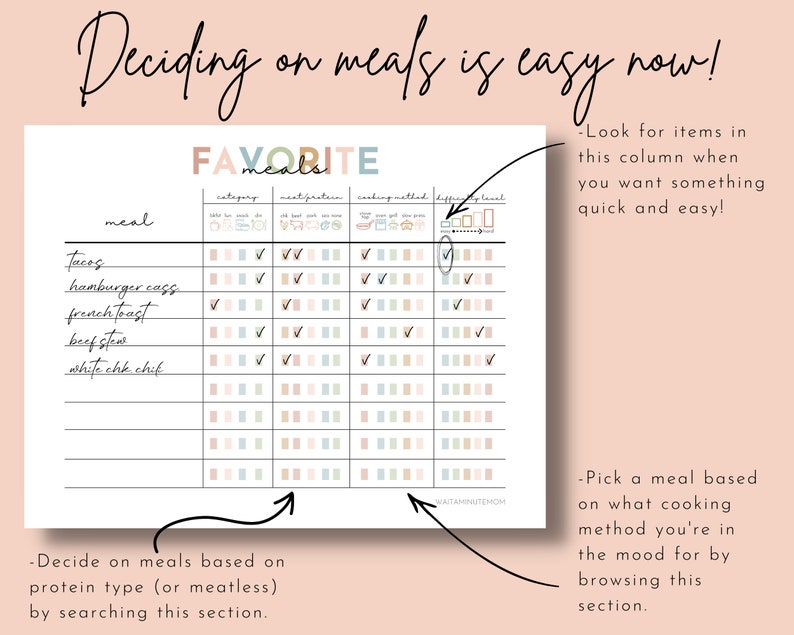 Deciding on meals is easy now!
-Look for items in
this column when
you want something
quick and easy!
FAVORITE
meals
category meat/protein cooking method difficulty level
meal
bkfst lun snack din chk beef pork sea none stove top oven grill slow press
easy hard
tacos
hamburger cass.
french toast
beef stew
white chk. chili
WAITAMINUTEMOM
-Pick a meal based
on what cooking
method you're in
the mood for by
browsing this
section.
-Decide on meals based on
protein type (or meatless)
by searching this section.